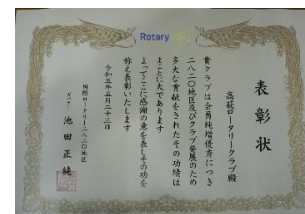 Rotary
表彰状
高萩ロータリークラブ殿
貴クラブは会員純増優秀につき
二八二〇地区及びクラブ発展のため
多大な貢献をされたその功績は
まことに大であります
よってここに感謝の意を表しその功を
称え表彰いたします
令和五年五月二十三日
国際ロータリー二八二〇地区
ガバナー 池田正純